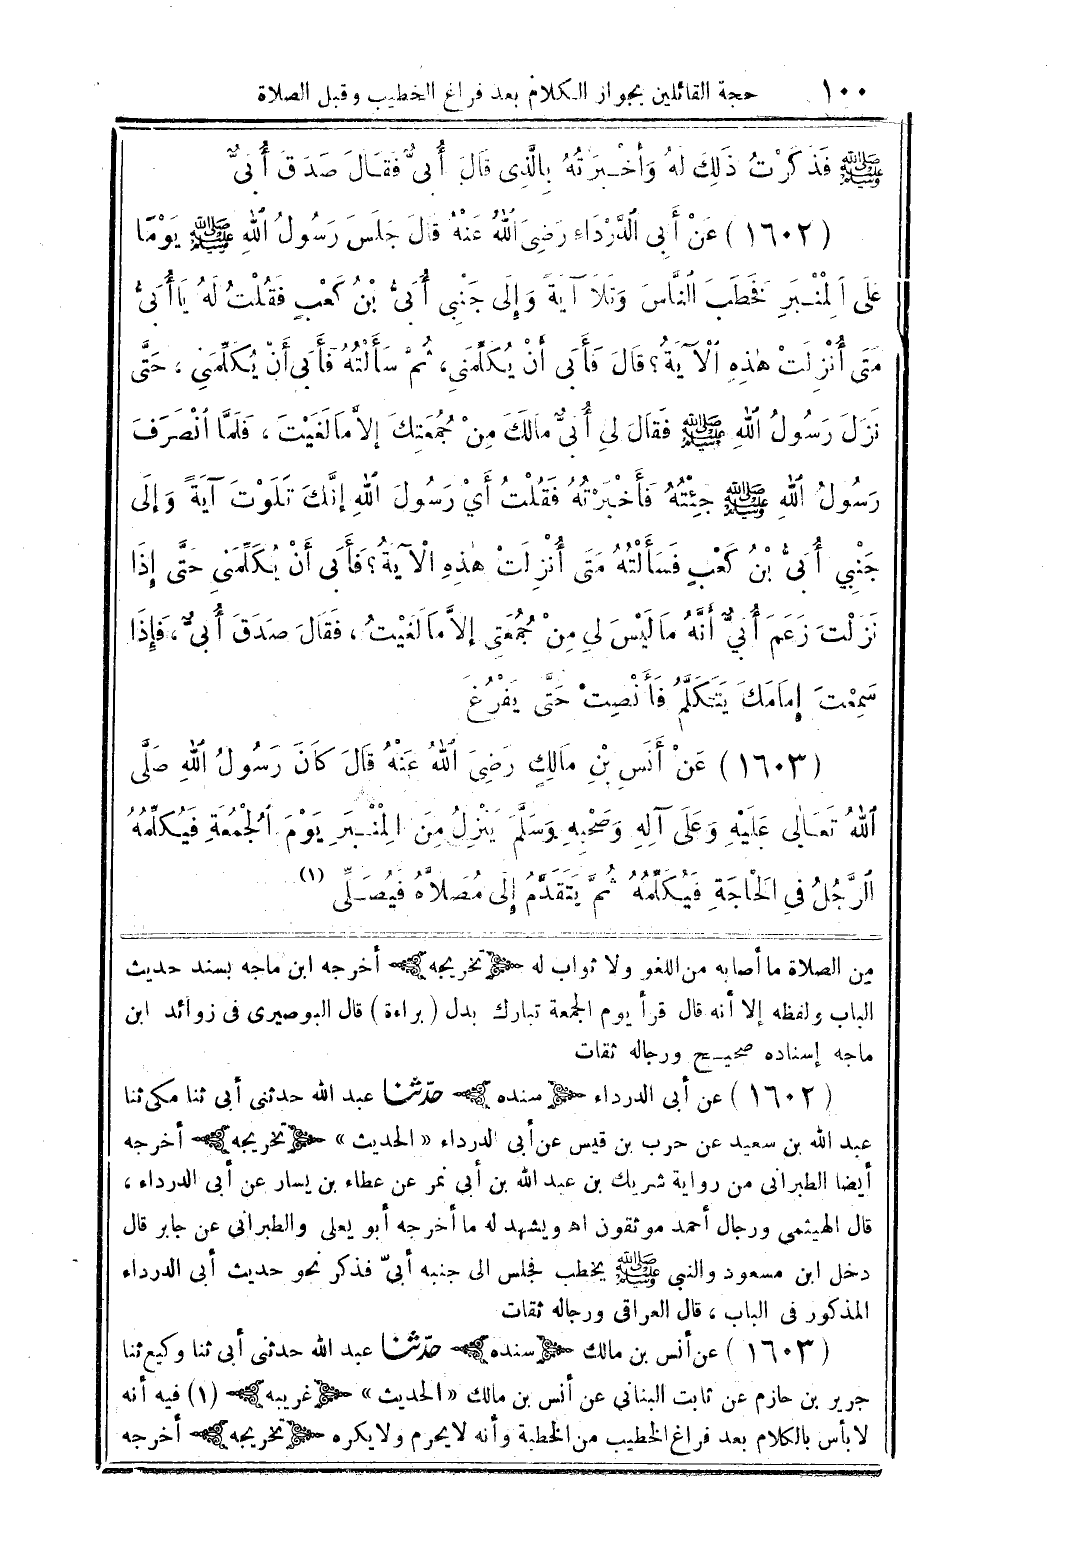 ١٠٠ حجة القائلين بجواز الكلام بعد فراغ الخطيب وقبل الصلاة
ﷺ فَذَكَرْتُ ذَلِكَ لَهُ وَأَخْبَرْتُهُ بِالَّذِى قَالَ أُبَىٌّ فَقَالَ صَدَقَ أُبَىٌّ
(١٦٠٢) عَنْ أَبِى الدَّرْدَاءِ رَضِىَ اللهُ عَنْهُ قَالَ جَلَسَ رَسُولُ اللهِ ﷺ يَوْمًا
عَلَى الْمِنْبَرِ فَخَطَبَ النَّاسَ وَتَلاَ آيَةً وَإِلَى جَنْبِى أُبَىُّ بْنُ كَعْبٍ فَقُلْتُ لَهُ يَا أُبَىُّ
مَتَى أُنْزِلَتْ هٰذِهِ الْآيَةُ؟ قَالَ فَأَبَى أَنْ يُكَلِّمَنِى، ثُمَّ سَأَلْتُهُ فَأَبَى أَنْ يُكَلِّمَنِي، حَتَّى
نَزَلَ رَسُولُ اللهِ ﷺ فَقَالَ لِى أُبَىٌّ مَالَكَ مِنْ جُمُعَتِكَ إِلاَّ مَا لَغَيْتَ، فَلَمَّا انْصَرَفَ
رَسُولُ اللهِ ﷺ جِئْتُهُ فَأَخْبَرْتُهُ فَقُلْتُ أَيْ رَسُولَ اللهِ إِنَّكَ تَلَوْتَ آيَةً وَإِلَى
جَنْبِي أُبَىُّ بْنُ كَعْبٍ فَسَأَلْتُهُ مَتَى أُنْزِلَتْ هٰذِهِ الْآيَةُ؟ فَأَبَى أَنْ يُكَلِّمَنِى حَتَّى إِذَا
نَزَلْتَ زَعَمَ أُبَيٌّ أَنَّهُ مَا لَيْسَ لِى مِنْ جُمُعَتِى إِلاَّ مَا لَغَيْتُ، فَقَالَ صَدَقَ أُبَىٌّ، فَإِذَا
سَمِعْتَ إِمَامَكَ يَتَكَلَّمُ فَأَنْصِتْ حَتَّى يَفْرُغَ
(١٦٠٣) عَنْ أَنَسِ بْنِ مَالِكٍ رَضِىَ اللهُ عَنْهُ قَالَ كَانَ رَسُولُ اللهِ صَلَّى
اللهُ تَعَالَى عَلَيْهِ وَعَلَى آلِهِ وَصَحْبِهِ وَسَلَّمَ يَنْزِلُ مِنَ الْمِنْبَرِ يَوْمَ الْجُمُعَةِ فَيُكَلِّمُهُ
الرَّجُلُ فِى الْحَاجَةِ فَيُكَلِّمُهُ ثُمَّ يَتَقَدَّمُ إِلَى مُصَلاَّهُ فَيُصَلِّى (١)
من الصلاة ما أصابه من اللغو ولا ثواب له ﴿تخريجه﴾ أخرجه ابن ماجه بسند حديث
الباب ولفظه إلا أنه قال قرأ يوم الجمعة تبارك بدل (براءة) قال البوصيرى فى زوائد ابن
ماجه إسناده صحيح ورجاله ثقات
(١٦٠٢) عن أبى الدرداء ﴿سنده﴾ حدّثنا عبد الله حدثنى أبى ثنا مكى ثنا
عبد الله بن سعيد عن حرب بن قيس عن أبى الدرداء «الحديث» ﴿تخريجه﴾ أخرجه
أيضا الطبرانى من رواية شريك بن عبد الله بن أبي نمر عن عطاء بن يسار عن أبى الدرداء،
قال الهيثمي ورجال أحمد موثقون اه ويشهد له ما أخرجه أبو يعلى والطبراني عن جابر قال
دخل ابن مسعود والنبي ﷺ يخطب فجلس الى جنبه أبىّ فذكر نحو حديث أبى الدرداء
المذكور فى الباب، قال العراقى ورجاله ثقات
(١٦٠٣) عن أنس بن مالك ﴿سنده﴾ حدّثنا عبد الله حدثنى أبى ثنا وكيع ثنا
جرير بن حازم عن ثابت البناني عن أنس بن مالك «الحديث» ﴿غريبه﴾ (١) فيه أنه
لا بأس بالكلام بعد فراغ الخطيب من الخطبة وأنه لا يحرم ولا يكره ﴿تخريجه﴾ أخرجه